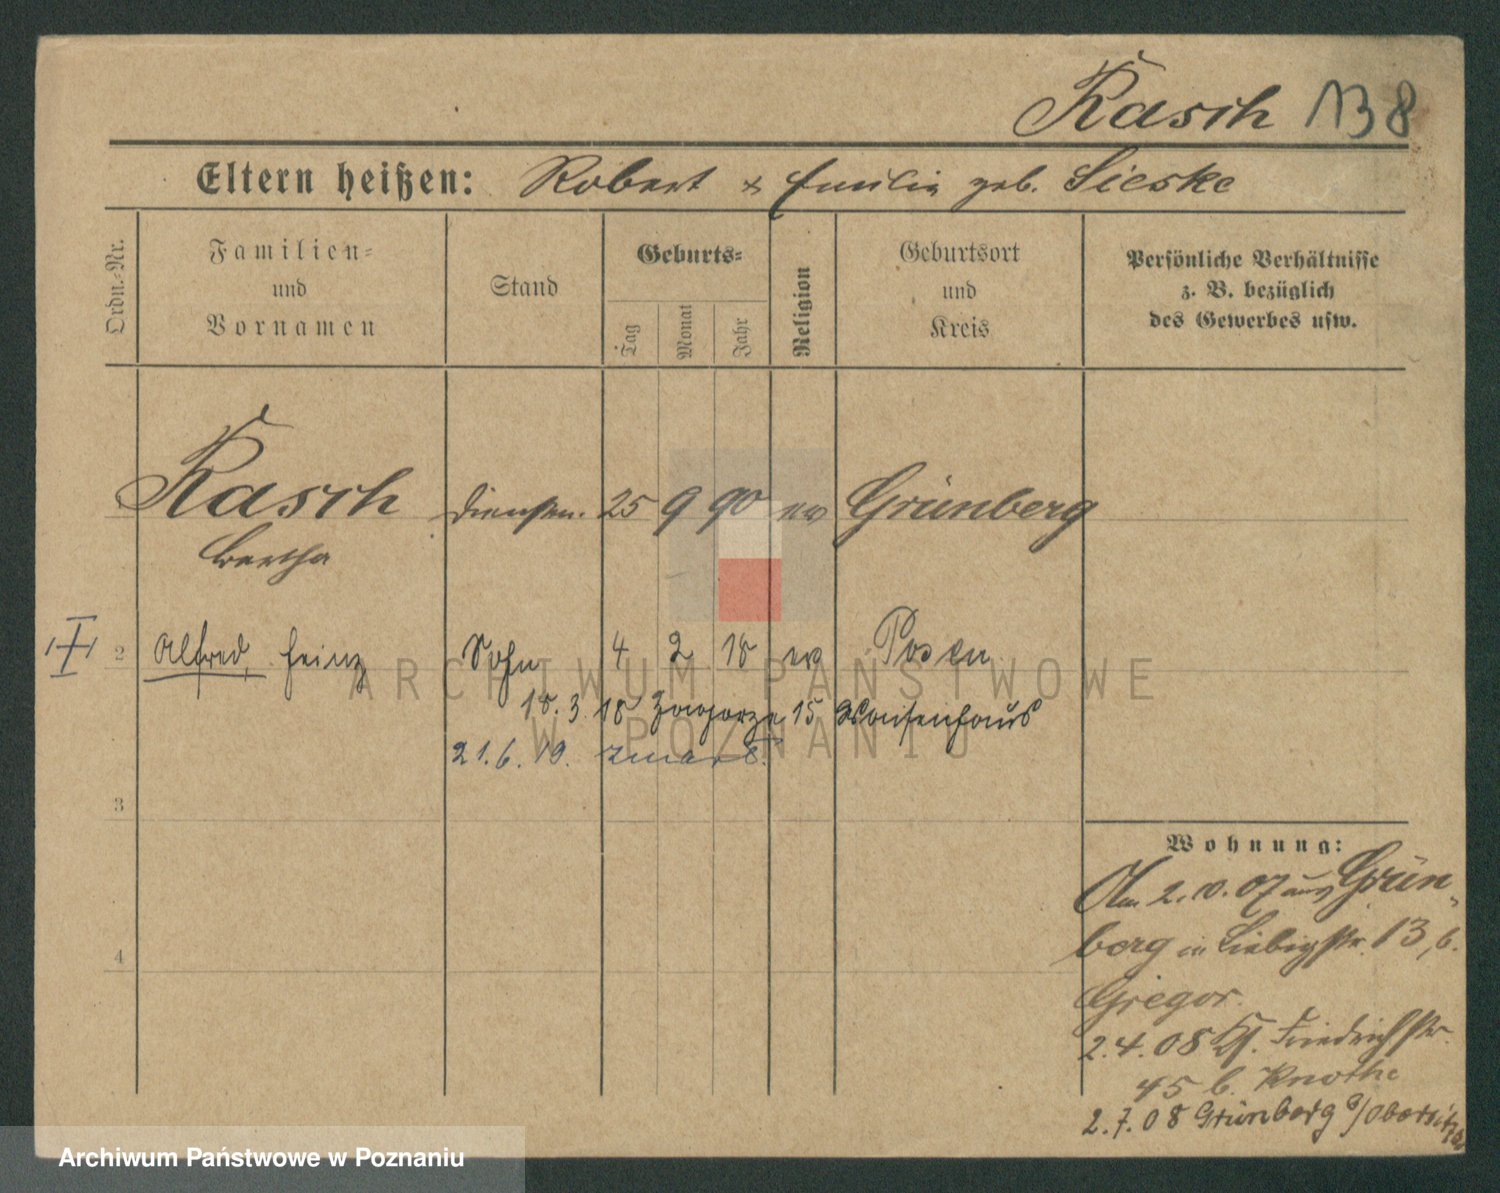 Rasch 138
Eltern heißen: Robert & Emilie geb. Sieske
Ordn.-Nr.
Familien-
und
Vornamen
Stand
Geburts-
Tag
Monat
Jahr
Religion
Geburtsort
und
Kreis
Persönliche Verhältnisse
z. B. bezüglich
des Gewerbes usw.
Rasch Dienstm. 25 9 90 ev Grünberg
Bertha
2 Alfred, Heinz Sohn 4 2 18 ev Posen
18.3.18 Zawporze 15 Waisenhaus
21.6.19. zmarł.
3
4
Wohnung:
Am 2.10.07 aus Grün-
berg in Liebigstr. 13, b.
Gregor.
2.4.08 Kl. Friedrichstr.
45 b. Knothe
2.7.08 Grünberg b/Obersitzko
ARCHIWUM PAŃSTWOWE
W POZNANIU
Archiwum Państwowe w Poznaniu